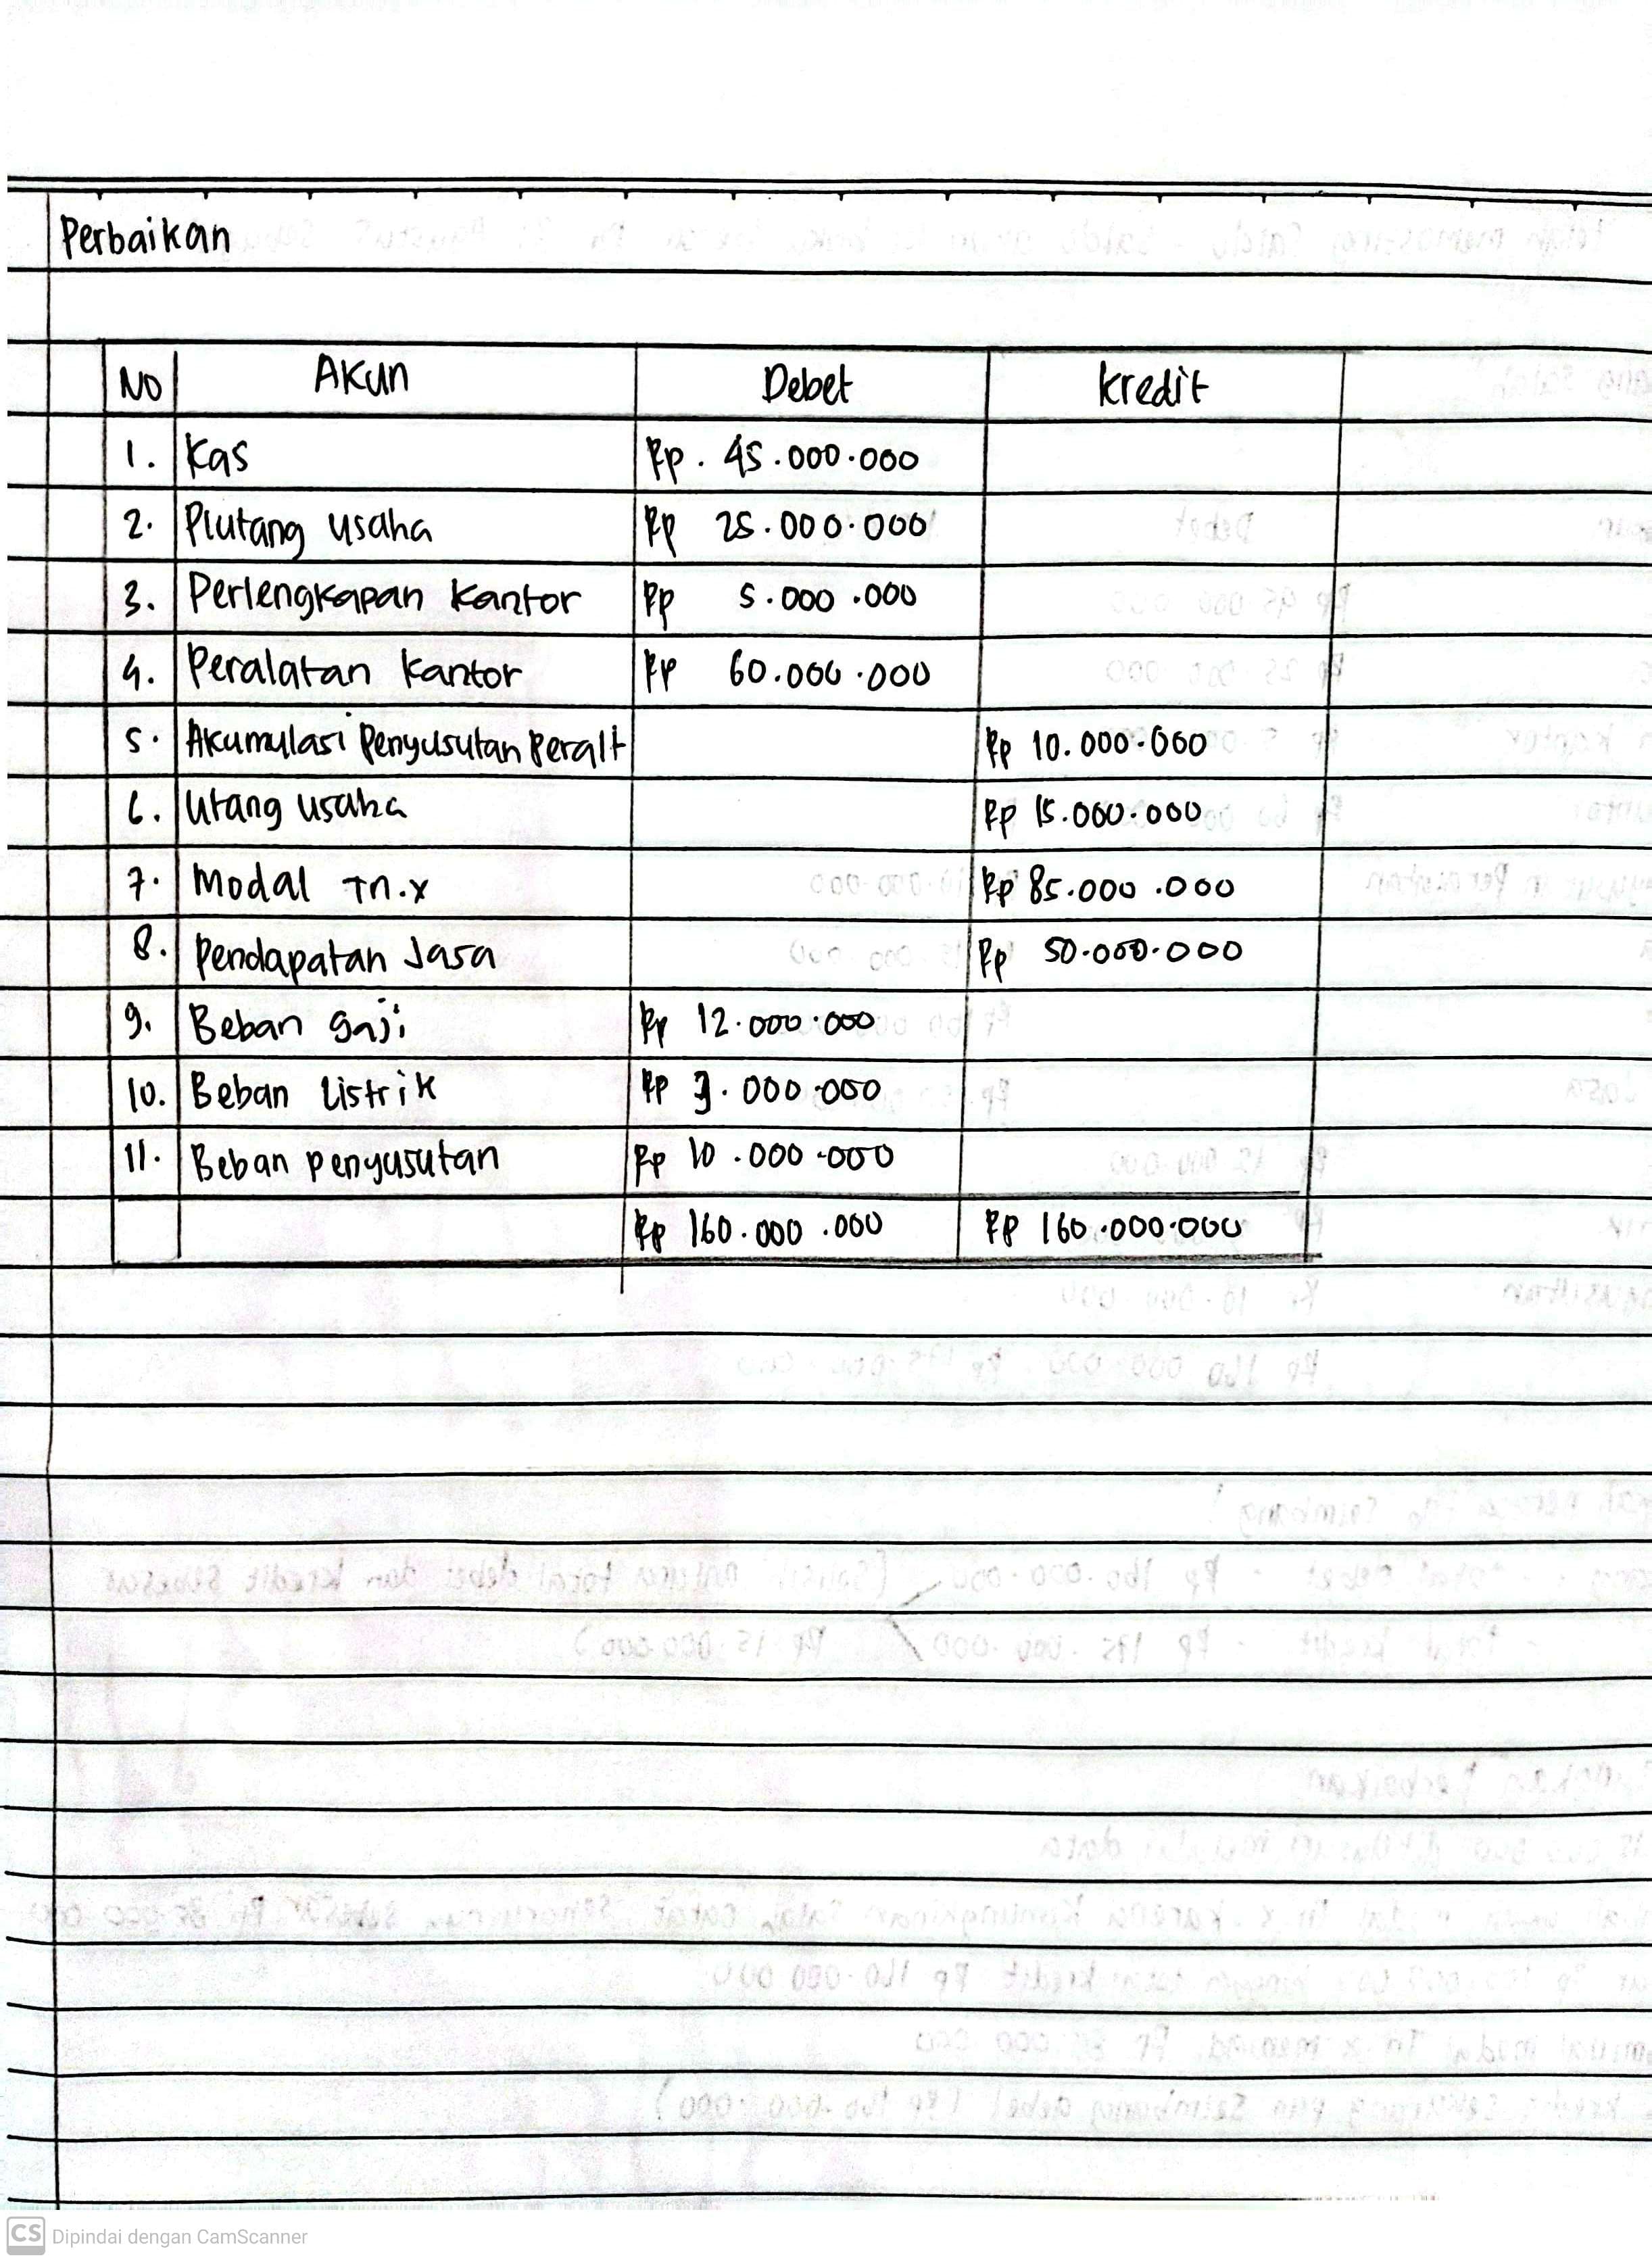 Perbaikan
No Akun Debet Kredit
1. Kas Rp. 45.000.000
2. Piutang usaha Rp 25.000.000
3. Perlengkapan Kantor Rp 5.000.000
4. Peralatan Kantor Rp 60.000.000
5. Akumulasi Penyusutan Peralt Rp 10.000.000
6. Utang usaha Rp 15.000.000
7. Modal Tn.x Rp 85.000.000
8. Pendapatan Jasa Rp 50.000.000
9. Beban gaji Rp 12.000.000
10. Beban Listrik Rp 3.000.000
11. Beban penyusutan Rp 10.000.000
Rp 160.000.000 Rp 160.000.000
CS Dipindai dengan CamScanner